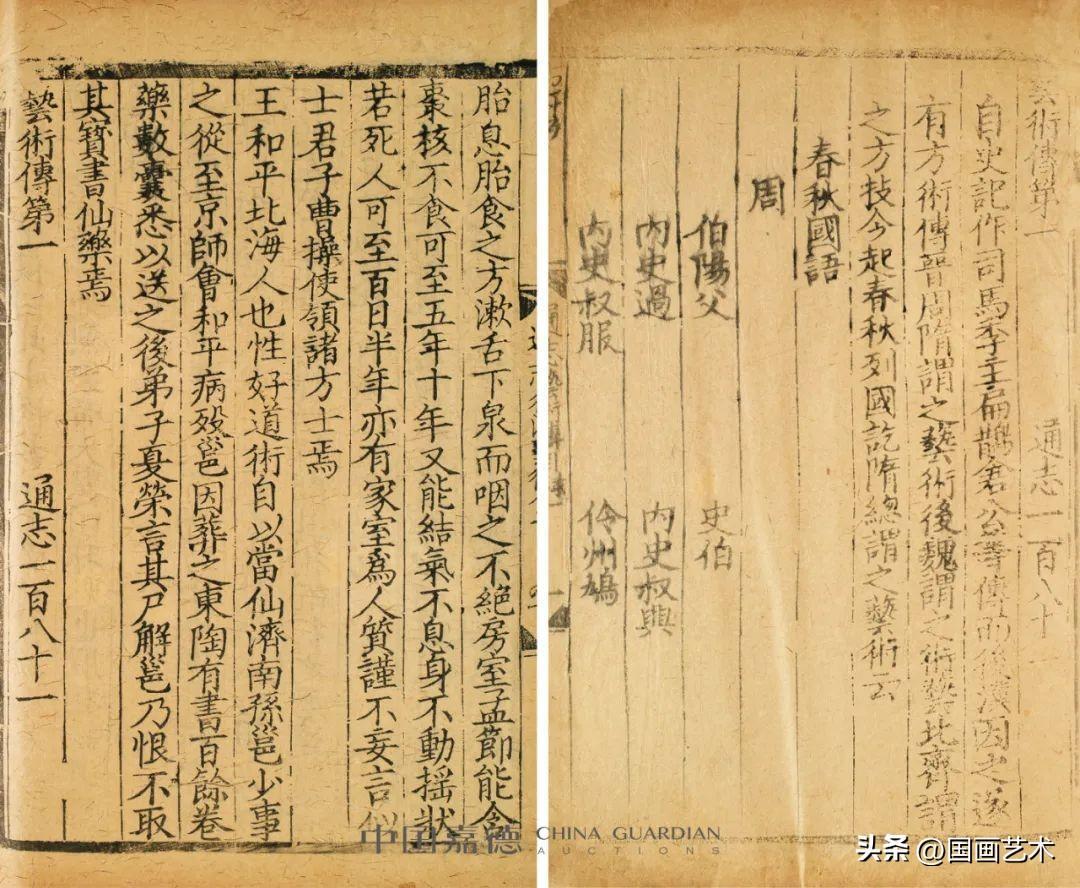 藝術傳第一 通志一百八十一
自史記作司馬季主扁鵲倉公等傳而後漢因之遂
有方術傳晉周隋謂之藝術後魏謂之術藝北齊謂
之方技今起春秋列國訖隋總謂之藝術云
春秋國語
周
伯陽父 史伯
內史過 內史叔興
內史叔服 伶州鳩
胎息胎食之方漱舌下泉而咽之不絕房室孟節能含
棗核不食可至五年十年又能結氣不息身不動揺狀
若死人可至百日半年亦有家室為人質謹不妄言似
士君子曹操使領諸方士焉
王和平北海人也性好道術自以當仙濟南孫邕少事
之從至京師會和平病殁邕因葬之東陶有書百餘卷
藥數囊悉以送之後弟子夏榮言其尸解邕乃恨不取
其寶書仙藥焉
藝術傳第一 通志一百八十一
中国嘉德 CHINA GUARDIAN
AUCTIONS
头条 @国画艺术